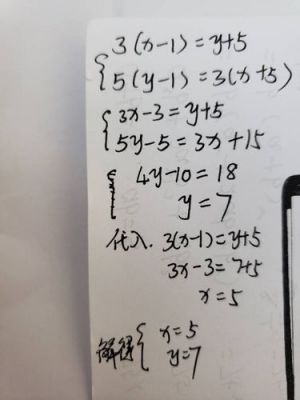 3(x-1)=y+5
5(y-1)=3(x+5)
3x-3=y+5
5y-5=3x+15
4y-10=18
y=7
代入. 3(x-1)=y+5
3x-3=7+5
x=5
解得 x=5
y=7